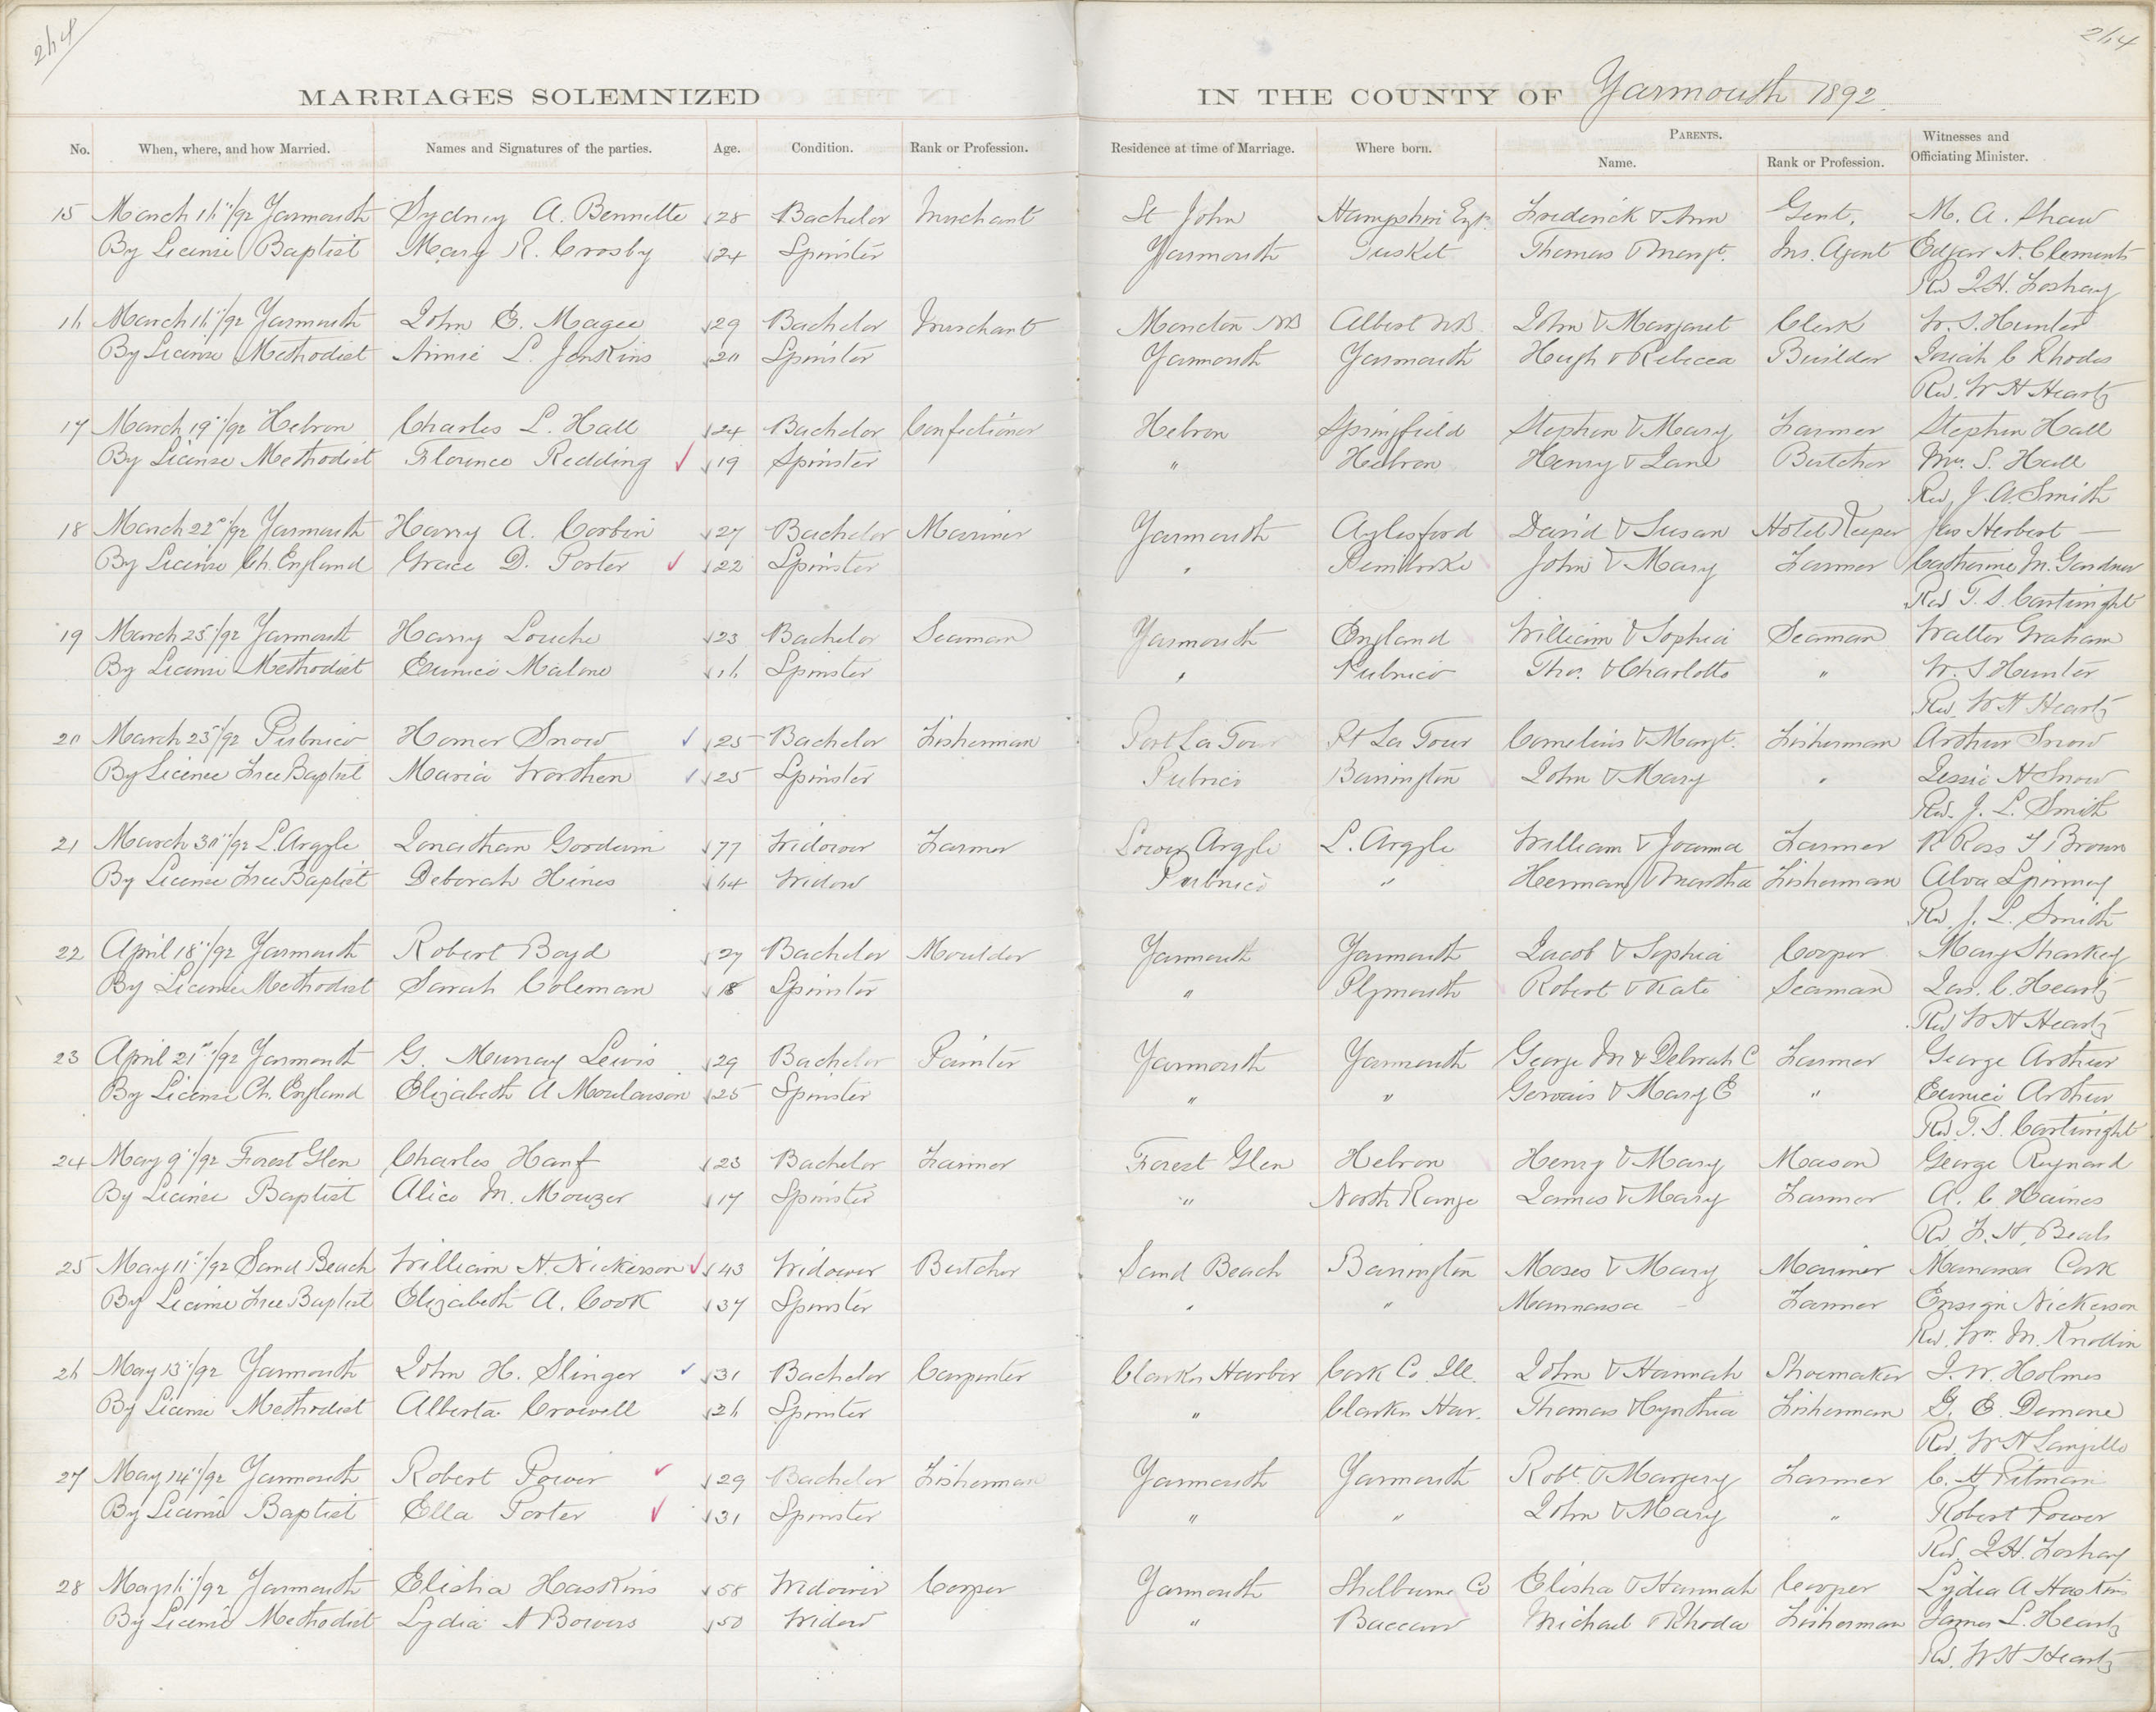 264
264
MARRIAGES SOLEMNIZED
IN THE COUNTY OF Yarmouth 1892.
No. When, where, and how Married. Names and Signatures of the parties. Age. Condition. Rank or Profession. Residence at time of Marriage. Where born. PARENTS. Name. Rank or Profession. Witnesses and Officiating Minister.
15 March 16"/92 Yarmouth Sydney A. Bennette 28 Bachelor Merchant St John Hampshire Eng. Frederick & Ann Gent. M. A. Shaw
By License Baptist Mary R. Crosby 24 Spinster Yarmouth Tusket Thomas & Margt. Ins. Agent Edgar N. Clements
Rev J.H. Foshay
16 March 16"/92 Yarmouth John E. Magee 29 Bachelor Merchant Moncton NB Albert N.B. John & Margaret Clerk W. S. Hunter
By License Methodist Annie L. Jenkins 20 Spinster Yarmouth Yarmouth Hugh & Rebecca Builder Josiah C Rhodes
Rev. W H Heartz
17 March 19"/92 Hebron Charles L. Hall 24 Bachelor Confectioner Hebron Springfield Stephen & Mary Farmer Stephen Hall
By License Methodist Florence Redding 19 Spinster " Hebron Henry & Jane Butcher Mrs. S. Hall
Rev. J. A Smith
18 March 22"/92 Yarmouth Harry A. Corbin 27 Bachelor Mariner Yarmouth Aylesford David & Susan Hotel Keeper Jas Herbert
By License Ch. England Grace D. Porter 22 Spinster " Pembroke John & Mary Farmer Catherine M. Gardner
Rev T. S. Cartwright
19 March 25"/92 Yarmouth Harry Louche 23 Bachelor Seaman Yarmouth England William & Sophia Seaman Walter Graham
By License Methodist Eunice Malone 16 Spinster " Pubnico Thos. & Charlotte " W. S Hunter
Rev. W H Heartz
20 March 23"/92 Pubnico Homer Snow 25 Bachelor Fisherman Port La Tour Pt La Tour Cornelius & Margt. Fisherman Arthur Snow
By License Free Baptist Maria Worthen 25 Spinster Pubnico Barrington John & Mary " Jessie H Snow
Rev. J. L. Smith
21 March 30"/92 L. Argyle Jonathan Goodwin 77 Widower Farmer Lower Argyle L. Argyle William & Joanna Farmer R Ross T Brown
By License Free Baptist Deborah Hines 64 Widow Pubnico " Herman & Martha Fisherman Alva Spinney
Rev J. L. Smith
22 April 18"/92 Yarmouth Robert Boyd 27 Bachelor Moulder Yarmouth Yarmouth Jacob & Sophia Cooper Mary Sharkey
By License Methodist Sarah Coleman 18 Spinster " Plymouth Robert & Kate Seaman Jas. C. Heartz
Rev W H Heartz
23 April 21st/92 Yarmouth G. Murray Lewis 29 Bachelor Painter Yarmouth Yarmouth George M & Deborah C Farmer George Arthur
By License Ch. England Elizabeth A Moulaison 25 Spinster " " Gervais & Mary E " Eunice Arthur
Rev T. S. Cartwright
24 May 9"/92 Forest Glen Charles Hanf 23 Bachelor Farmer Forest Glen Hebron Henry & Mary Mason George Raynard
By License Baptist Alice M. Mouzer 17 Spinster " North Range James & Mary Farmer A. C Haines
Rev F. H. Beals
25 May 11"/92 Sand Beach William H. Nickerson 43 Widower Butcher Sand Beach Barrington Moses & Mary Mariner Manassa Cook
By License Free Baptist Elizabeth A. Cook 37 Spinster " " Mannassa Farmer Ensign Nickerson
Rev. Wm. M. Knollin
26 May 13"/92 Yarmouth John H. Slinger 31 Bachelor Carpenter Clarks Harbor Cook Co. Ill. John & Hannah Shoemaker J. W. Holmes
By License Methodist Alberta Crowell 26 Spinster " Clarks Har. Thomas & Cynthia Fisherman G. E. Demone
Rev. W H Langille
27 May 14"/92 Yarmouth Robert Power 29 Bachelor Fisherman Yarmouth Yarmouth Robt. & Margery Farmer C. H Pitman
By License Baptist Ella Porter 31 Spinster " " John & Mary " Robert Power
Rev. J H. Foshay
28 May 16"/92 Yarmouth Elisha Haskins 58 Widower Cooper Yarmouth Shelburne Co Elisha & Hannah Cooper Lydia A Haskins
By License Methodist Lydia A Bowers 50 Widow " Baccaro Michael & Rhoda Fisherman James L. Heartz
Rev. W H Heartz